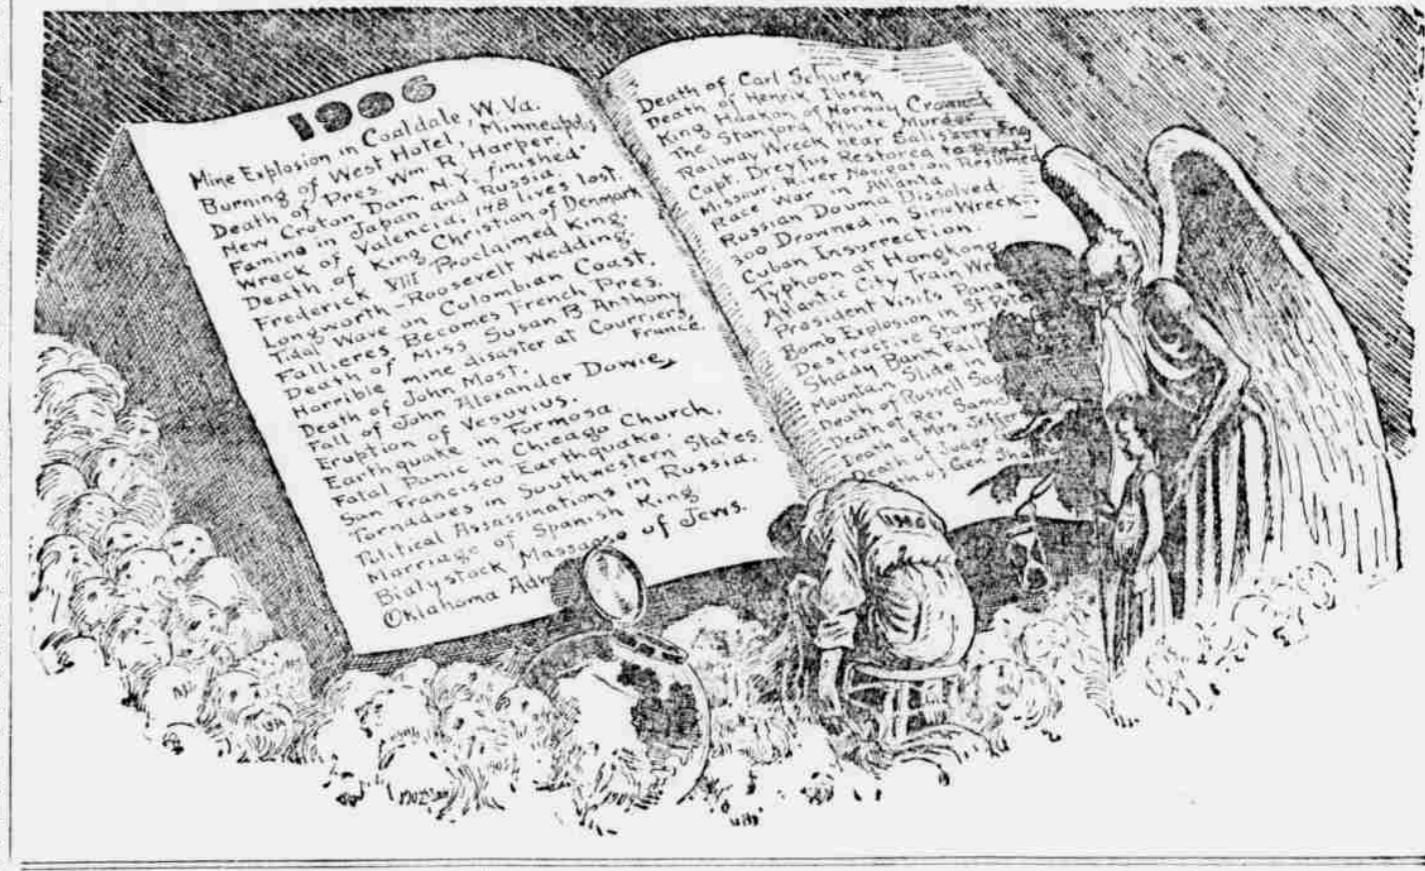 1906
Mine Explosion in Coaldale, W. Va.
Burning of West Hotel, Minneapolis
Death of Pres. Wm. R. Harper.
New Croton Dam, N.Y. finished.
Famine in Japan and Russia.
Wreck of Valencia, 148 lives lost.
Death of King Christian of Denmark
Frederick VIII Proclaimed King.
Longworth-Roosevelt Wedding.
Tidal Wave on Colombian Coast.
Fallieres Becomes French Pres.
Death of Miss Susan B Anthony
Horrible mine disaster at Courriers,
France.
Death of John Most.
Fall of John Alexander Dowie,
Eruption of Vesuvius.
Earthquake in Formosa
Fatal Panic in Chicago Church.
San Francisco Earthquake.
Tornadoes in Southwestern States.
Political Assassinations in Russia.
Marriage of Spanish King
Bialystock Massacre of Jews.
Oklahoma Adm
Death of Carl Schurz
Death of Henrik Ibsen
King Haakon of Norway Crowned
The Stanford White Murder
Railway Wreck near Salisbury Eng
Capt. Dreyfus Restored to Rank
Missouri River Navigation Resumed
Race War in Atlanta
Russian Douma Dissolved.
300 Drowned in Sirio Wreck.
Cuban Insurrection.
Typhoon at Hongkong
Atlantic City Train Wre
President Visits Pana
Bomb Explosion in St Pete
Destructive Storm
Shady Bank Fail
Mountain Slide in
Death of Russell Sag
Death of Rev Samuel
Death of Mrs. Jeffer
Death of Judge
of Gen Sha
1906
07